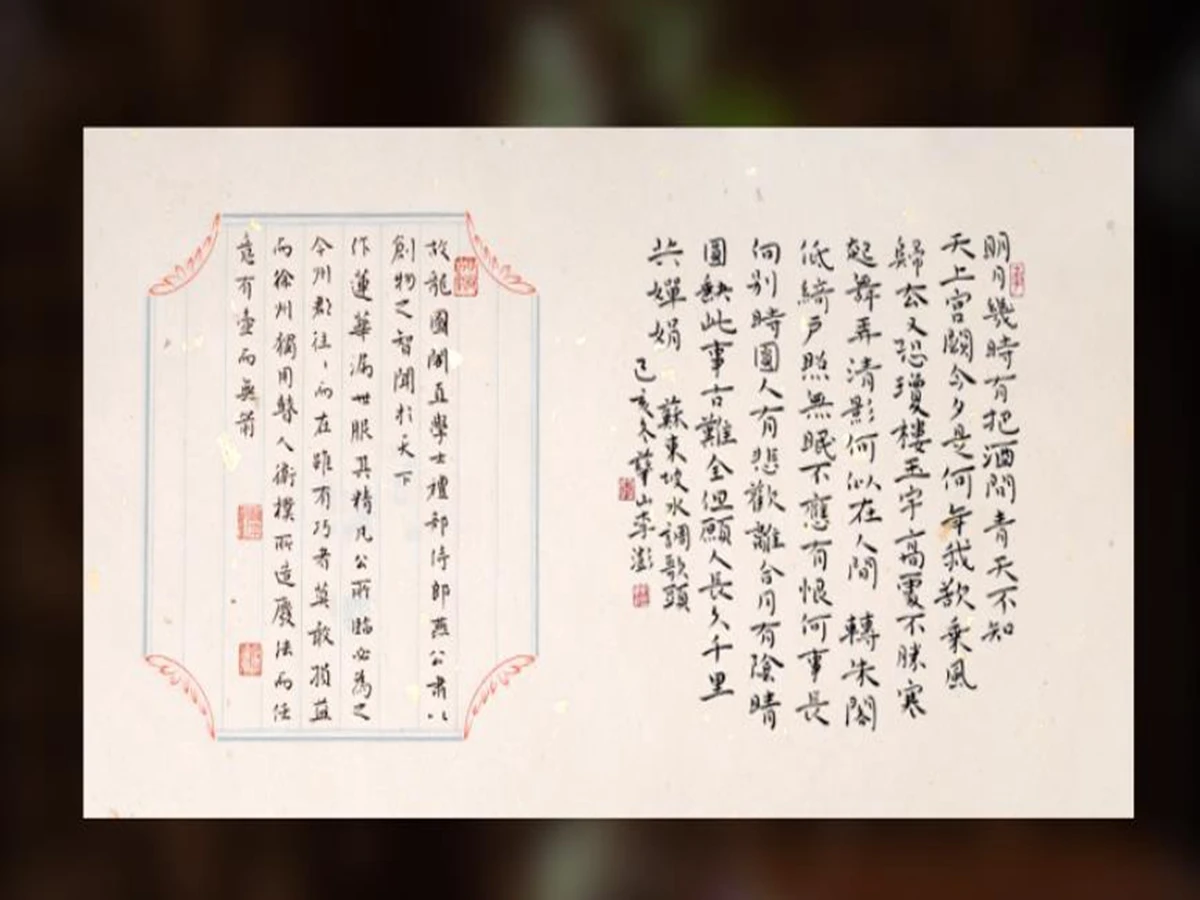 明月幾時有把酒問青天不知
天上宮闕今夕是何年我欲乘風
歸去又恐瓊樓玉宇高處不勝寒
起舞弄清影何似在人間 轉朱閣
低綺戶照無眠不應有恨何事長
向別時圓人有悲歡離合月有陰晴
圓缺此事古難全但願人長久千里
共嬋娟 蘇東坡水調歌頭
己亥冬華山李澎
故龍圖閣直學士禮部侍郎燕公肅以
創物之智聞於天下
作蓮華漏世服其精凡公所臨必為之
今州郡往丶而在雖有巧者莫敢損益
而徐州獨用瞽人衛樸所造廢法而任
意有壺而無箭